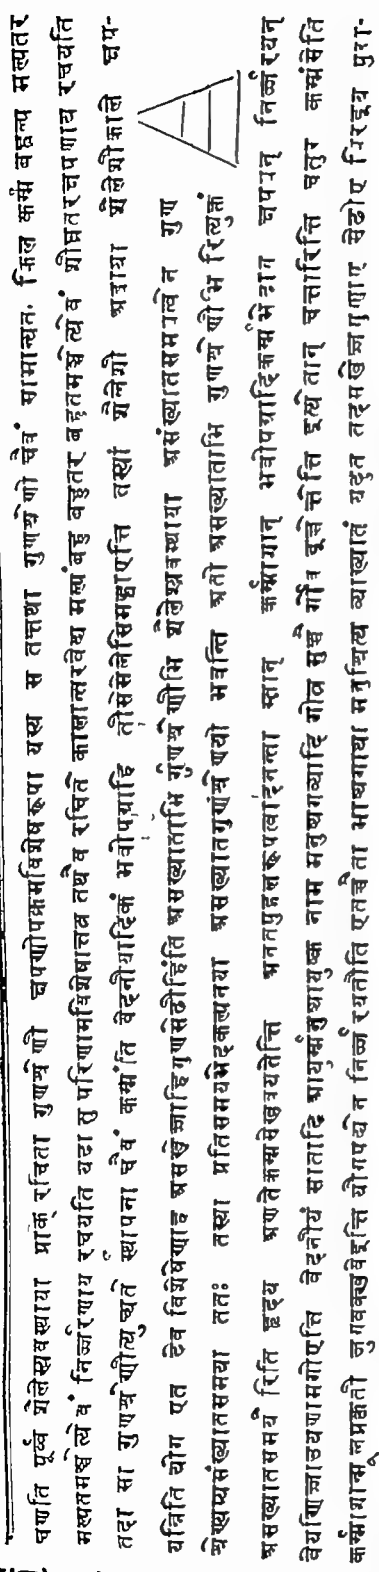 चणति पूर्व्वं शैलेश्यवस्थाया प्राक् रचिता गुणश्रेणी क्षपणोपक्रमविशेषरूपा यस्य स तत्तथा गुणश्रेणी चैवं सामान्यतः किल कर्म्म बह्वल्प मल्पतर
मल्पतमञ्चेत्येवं निर्ज्जरणाय रचयति यदा तु परिणामविशेषात्तत्र तथैव रचिते कालान्तरवेद्य मल्पं बहु बहुतर बहुतमञ्चेत्येवं शीघ्रतरक्षपणाय रचयति
तदा सा गुणश्रेणीत्युच्यते स्थापना चैवं कर्म्मति वेदनीयादिकं भवोपग्राहि तीसेसेलेसिमद्धाएत्ति तस्यां शैलेशी अद्वाया शैलेशीकाले क्षप-
यन्निति योग एत देव विशेषेणाह असंखेज्जाहिंगुणसेढीहिंति असंख्याताभि र्गुणश्रेणीभि शैलेश्यवस्थाया असंख्यातसमयत्वेन गुण
श्रेण्यप्यसंख्यातसमया ततः तस्या प्रतिसमयभेदकल्पनया असंख्यातगुणश्रेणयो भवन्ति अतो असंख्याताभि र्गुणश्रेणीभि रित्युक्तं
असंख्यातसमयै रिति हृदय अणंतेकम्मंसेखवयंतेत्ति अनन्तपुद्गलरूपत्वादनन्ता स्तान् कर्म्मांशान् भवोपग्राहिकर्म्मभेदान् क्षपयन् निर्ज्जरयन्
वेयणिज्जाउयणामगोएत्ति वेदनीयं सातादि आयुर्मनुष्यायुष्क नाम मनुष्यगत्यादि गोत्र मुच्चै र्गोत्र इच्चे तेत्ति इत्येतान् चत्तारित्ति चतुर कम्मंसेति
कर्म्मांशान्मूलप्रकृती जुगवंखवेइत्ति यौगपद्येन निर्ज्जरयतीति एतच्चैता भाष्यगाथा मनुश्रित्य व्याख्यातं यदुत तदसंखेज्जगुणाए सेढीए विरइय पुरा-